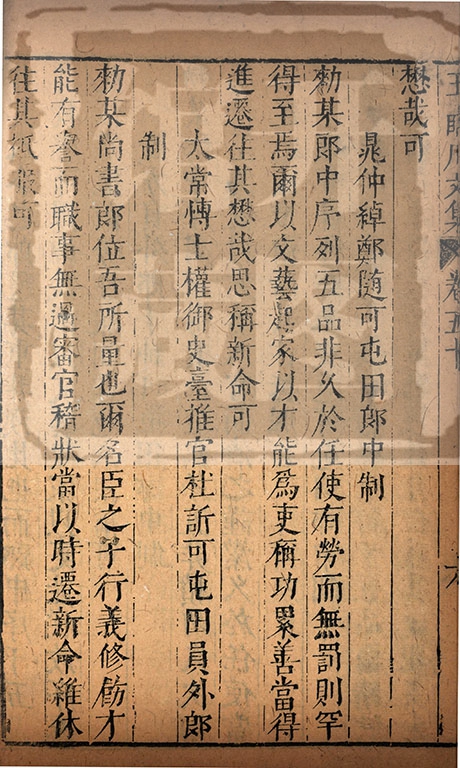 王臨川文集 卷五十
六
懋哉可
晁仲綽鄭隨可屯田郎中制
勑某郎中序列五品非久於任使有勞而無罰則罕
得至焉爾以文藝起家以才能爲吏稱功累善當得
進遷往其懋哉思稱新命可
太常博士權御史臺推官杜訢可屯田員外郎
制
勑某尚書郎位吾所量也爾名臣之子行義修飭才
能有譽而職事無過審官稽狀當以時遷新命維休
往其祗服可